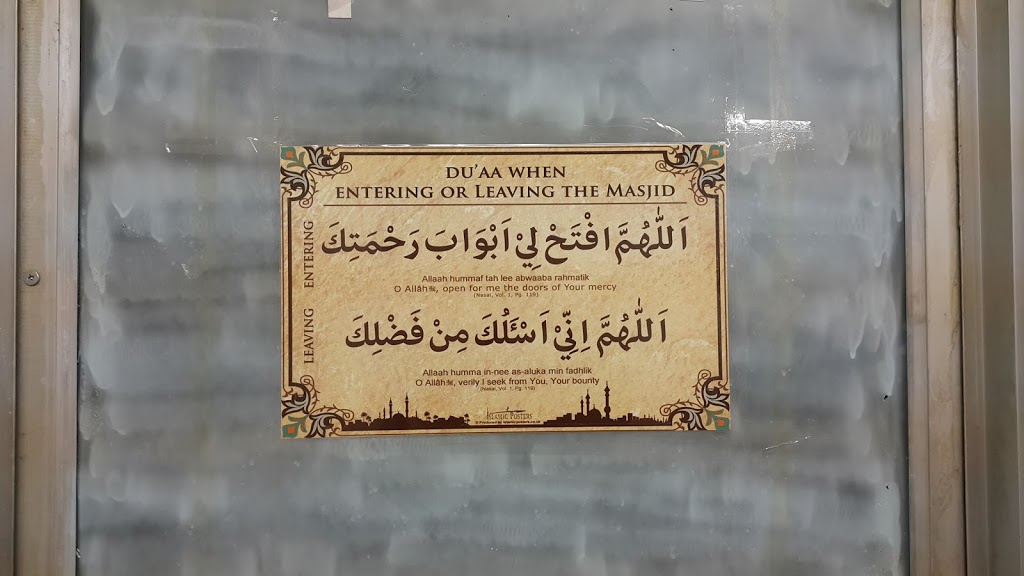 DU'AA WHEN
ENTERING OR LEAVING THE MASJID
ENTERING
اَللّٰهُمَّ افْتَحْ لِيْ اَبْوَابَ رَحْمَتِكَ
Allaah hummaf tah lee abwaaba rahmatik
O Allâhﷻ, open for me the doors of Your mercy
(Nasai, Vol. 1, Pg. 119)
LEAVING
اَللّٰهُمَّ اِنِّيْ اَسْئَلُكَ مِنْ فَضْلِكَ
Allaah humma in-nee as-aluka min fadhlik
O Allâhﷻ, verily I seek from You, Your bounty
(Nasai, Vol. 1, Pg. 119)
ISLAMIC POSTERS
© Produced by islamicposters.co.uk